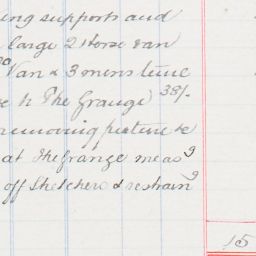 ing supports and
large 2 Horse van
Van & 3 mens time
to The Grange 38/-
removing picture &c
at The Grange meas^g
off Sketchers & restrain^g
15